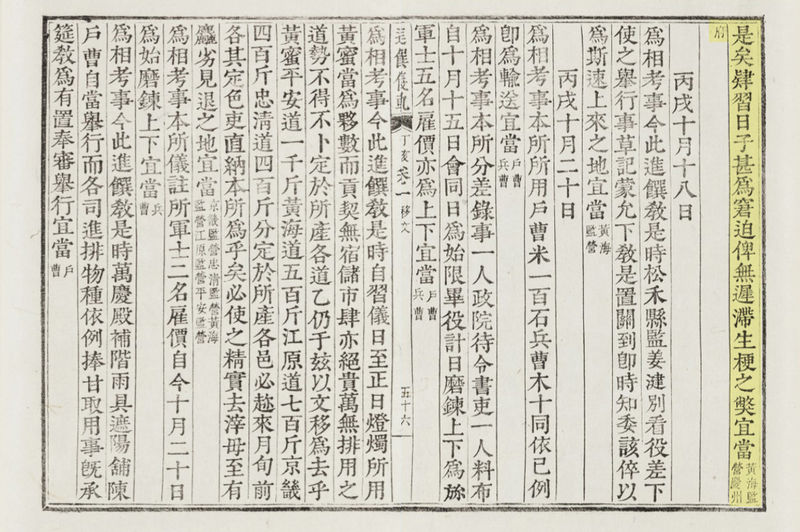 是矣肄習日子甚爲窘迫俾無遲滯生梗之弊宜當黃海監營慶州
府
丙戌十月十八日
爲相考事今此進饌敎是時松禾縣監姜湕別看役差下
使之擧行事草記蒙允下敎是置關到卽時知委該倅以
爲斯速上來之地宜當黃海監營
丙戌十月二十日
爲相考事本所所用戶曹米一百石兵曹木十同依已例
卽爲輸送宜當戶曹兵曹
爲相考事本所分差錄事一人政院待令書吏一人料布
自十月十五日會同日爲始限畢役計日磨鍊上下爲旀
軍士五名雇價亦爲上下宜當戶曹兵曹
進饌儀軌 丁亥 卷一 移文 五十六
爲相考事今此進饌敎是時自習儀日至正日燈燭所用
黃蜜當爲夥數而貢契無宿儲市肆亦絕貴萬無排用之
道勢不得不卜定於所產各道乙仍于玆以文移爲去乎
黃蜜平安道一千斤黃海道五百斤江原道七百斤京畿
四百斤忠淸道四百斤分定於所產各邑必趂來月旬前
各其定色吏直納本所爲乎矣必使之精實去滓毋至有
麤劣見退之地宜當京畿監營忠淸監營黃海監營江原監營平安監營
爲相考事本所儀註所軍士二名雇價自今十月二十日
爲始磨鍊上下宜當兵曹
爲相考事今此進饌敎是時萬慶殿補階雨具遮陽鋪陳
戶曹自當擧行而各司進排物種依例捧甘取用事旣承
筵敎爲有置奉審擧行宜當戶曹